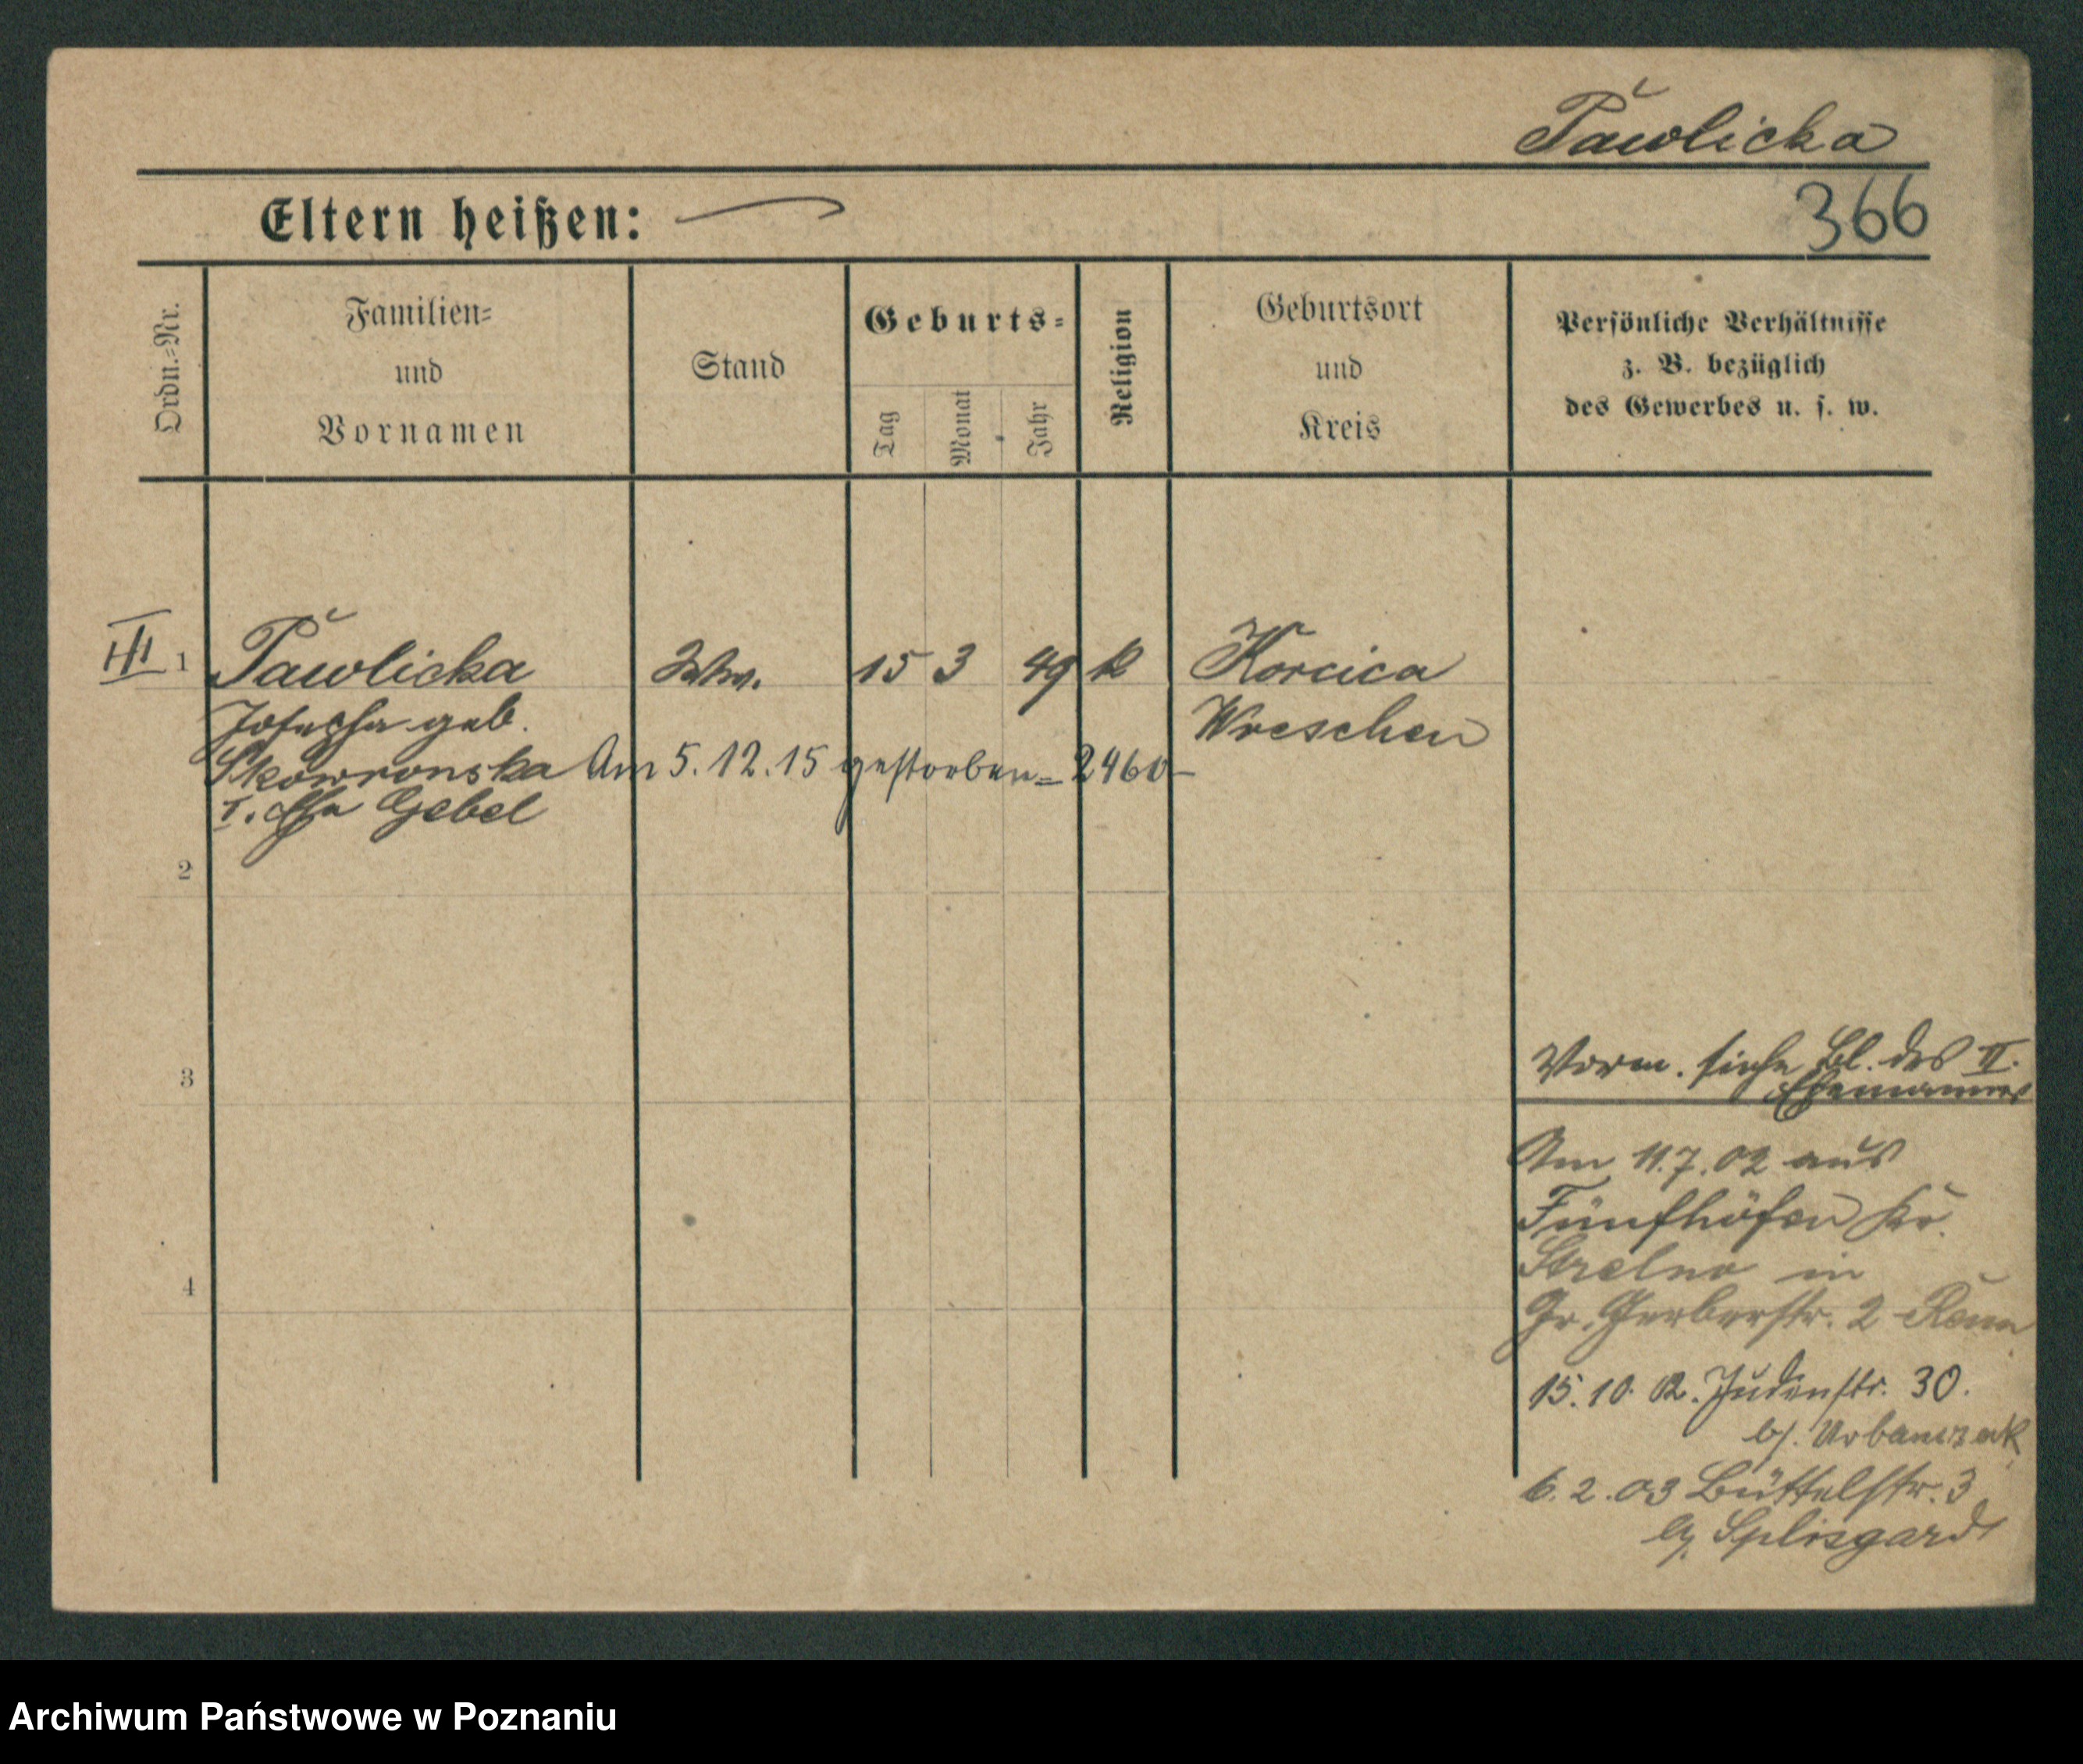 Pawlicka
Eltern heißen:
366
Ordn.-Nr.
Familien-
und
Vornamen
Stand
Geburts-
Tag
Monat
Jahr
Religion
Geburtsort
und
Kreis
Persönliche Verhältnisse
z. B. bezüglich
des Gewerbes u. s. w.
III 1 Pawlicka Ww. 15 3 49 k Korcica
Josepha geb. Wreschen
Skowronska Am 5.12.15 gestorben = 2460
I. Ehe Gebel
2
3
4
Vorm. siehe Bl. des II.
Ehemannes
Am 11.7.02 aus
Fünfhöfen Kr.
Strelno in
Gr. Gerberstr. 2
15.10.02. Judenstr. 30.
b/. Urbaniczak
6.2.03 Büttelstr. 3
b/. Splisgardt
Archiwum Państwowe w Poznaniu